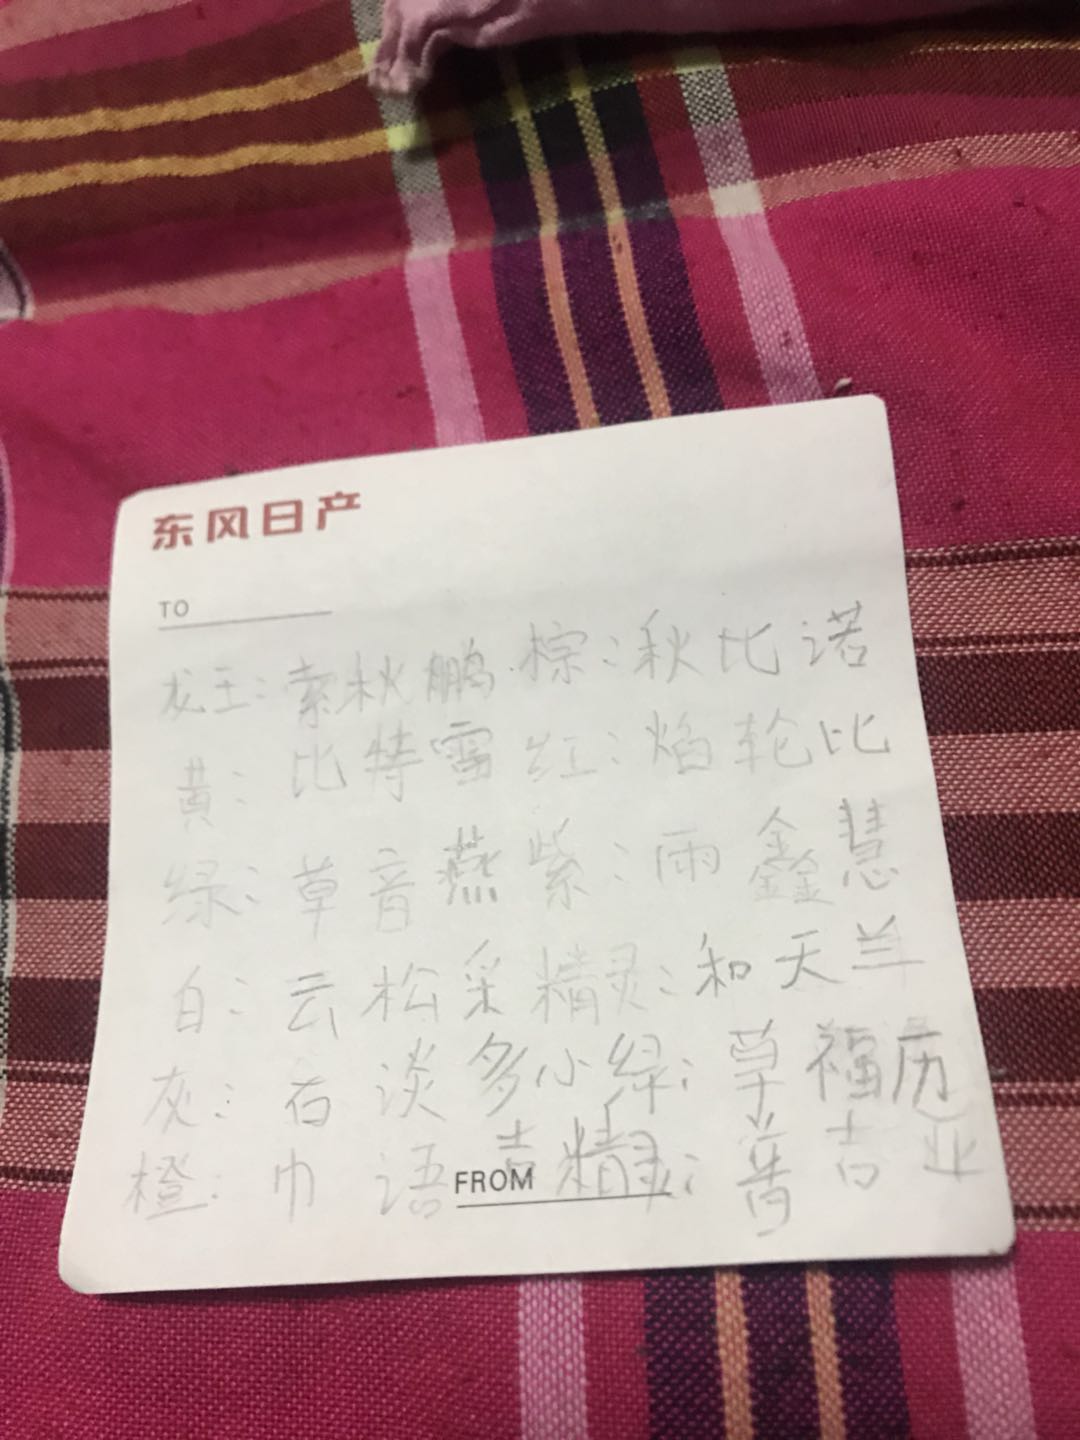 东风日产
TO
龙王：索秋鹏 棕：秋比诺
黄：比特雷 红：焰轮比
绿：草音燕 紫：雨鑫慧
白：云松采 精灵：和天兰
灰：石淡多 小绿：草福历
橙：巾语吉 精灵：普吉业
FROM